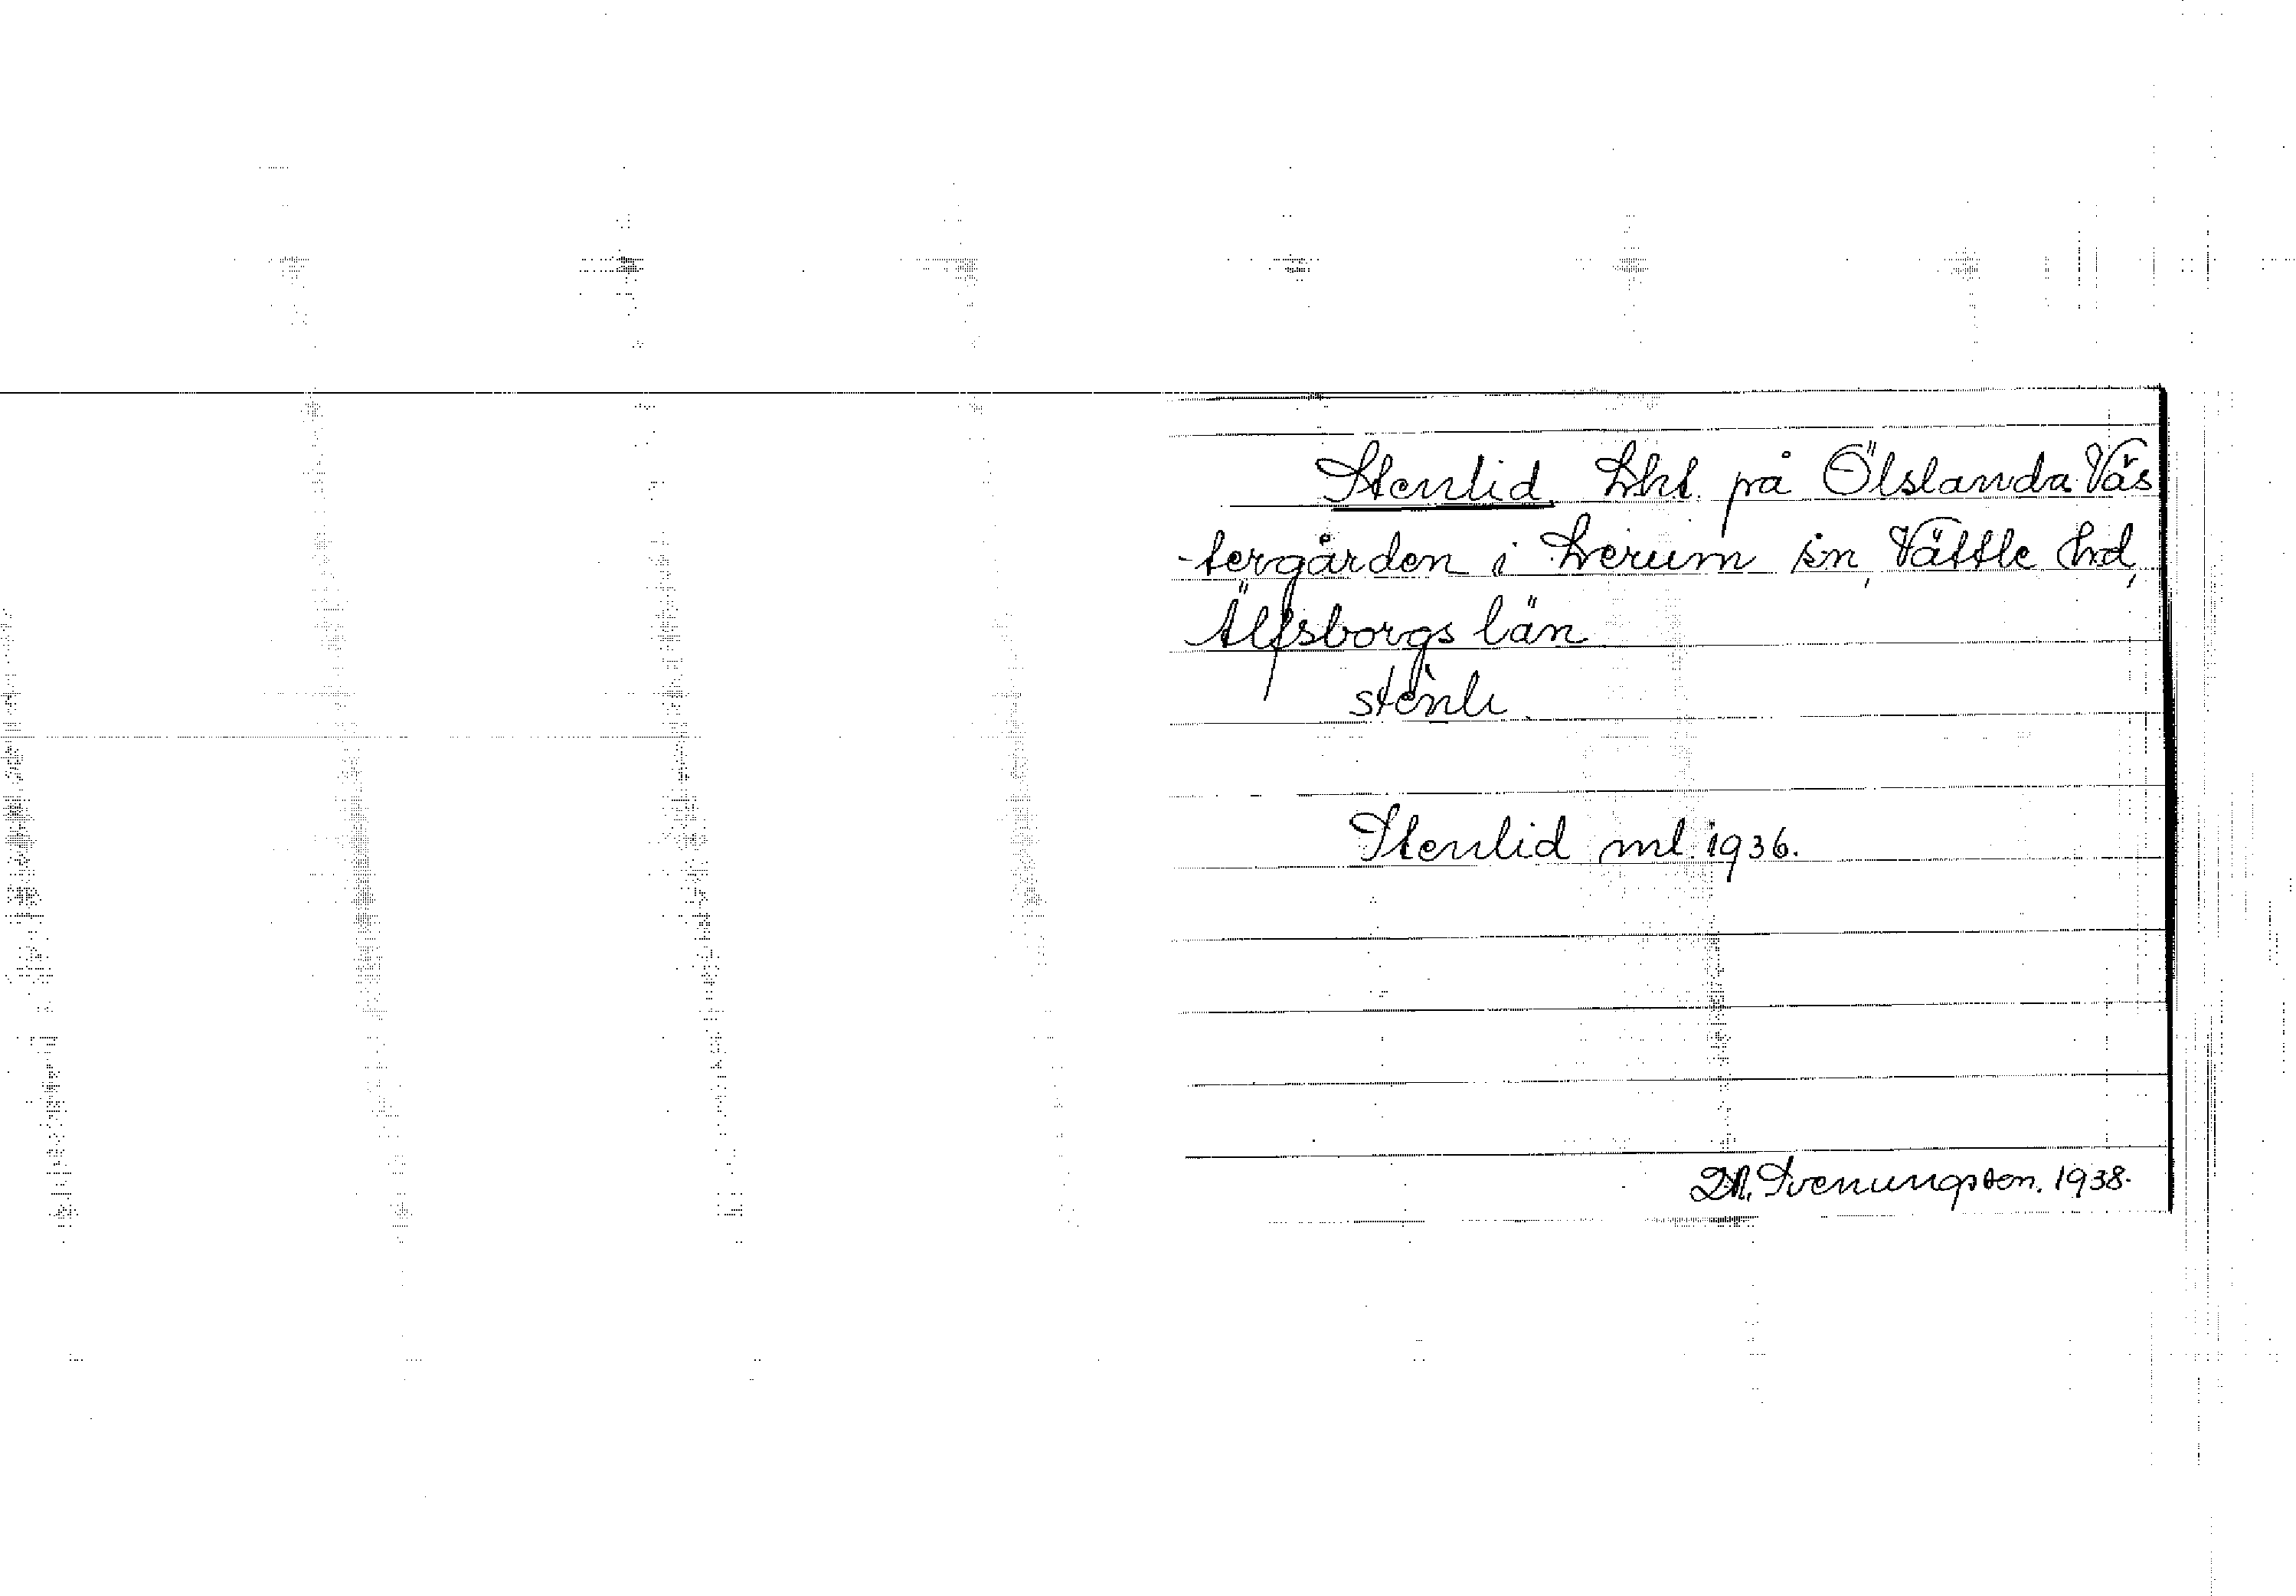 Stenlid. Lht. på Ölslanda Väs
-tergården i Lerum sn, Vättle hd,
Älfsborgs län
stènlı
Stenlid ml. 1936.
D.A. Svenungsson. 1938.